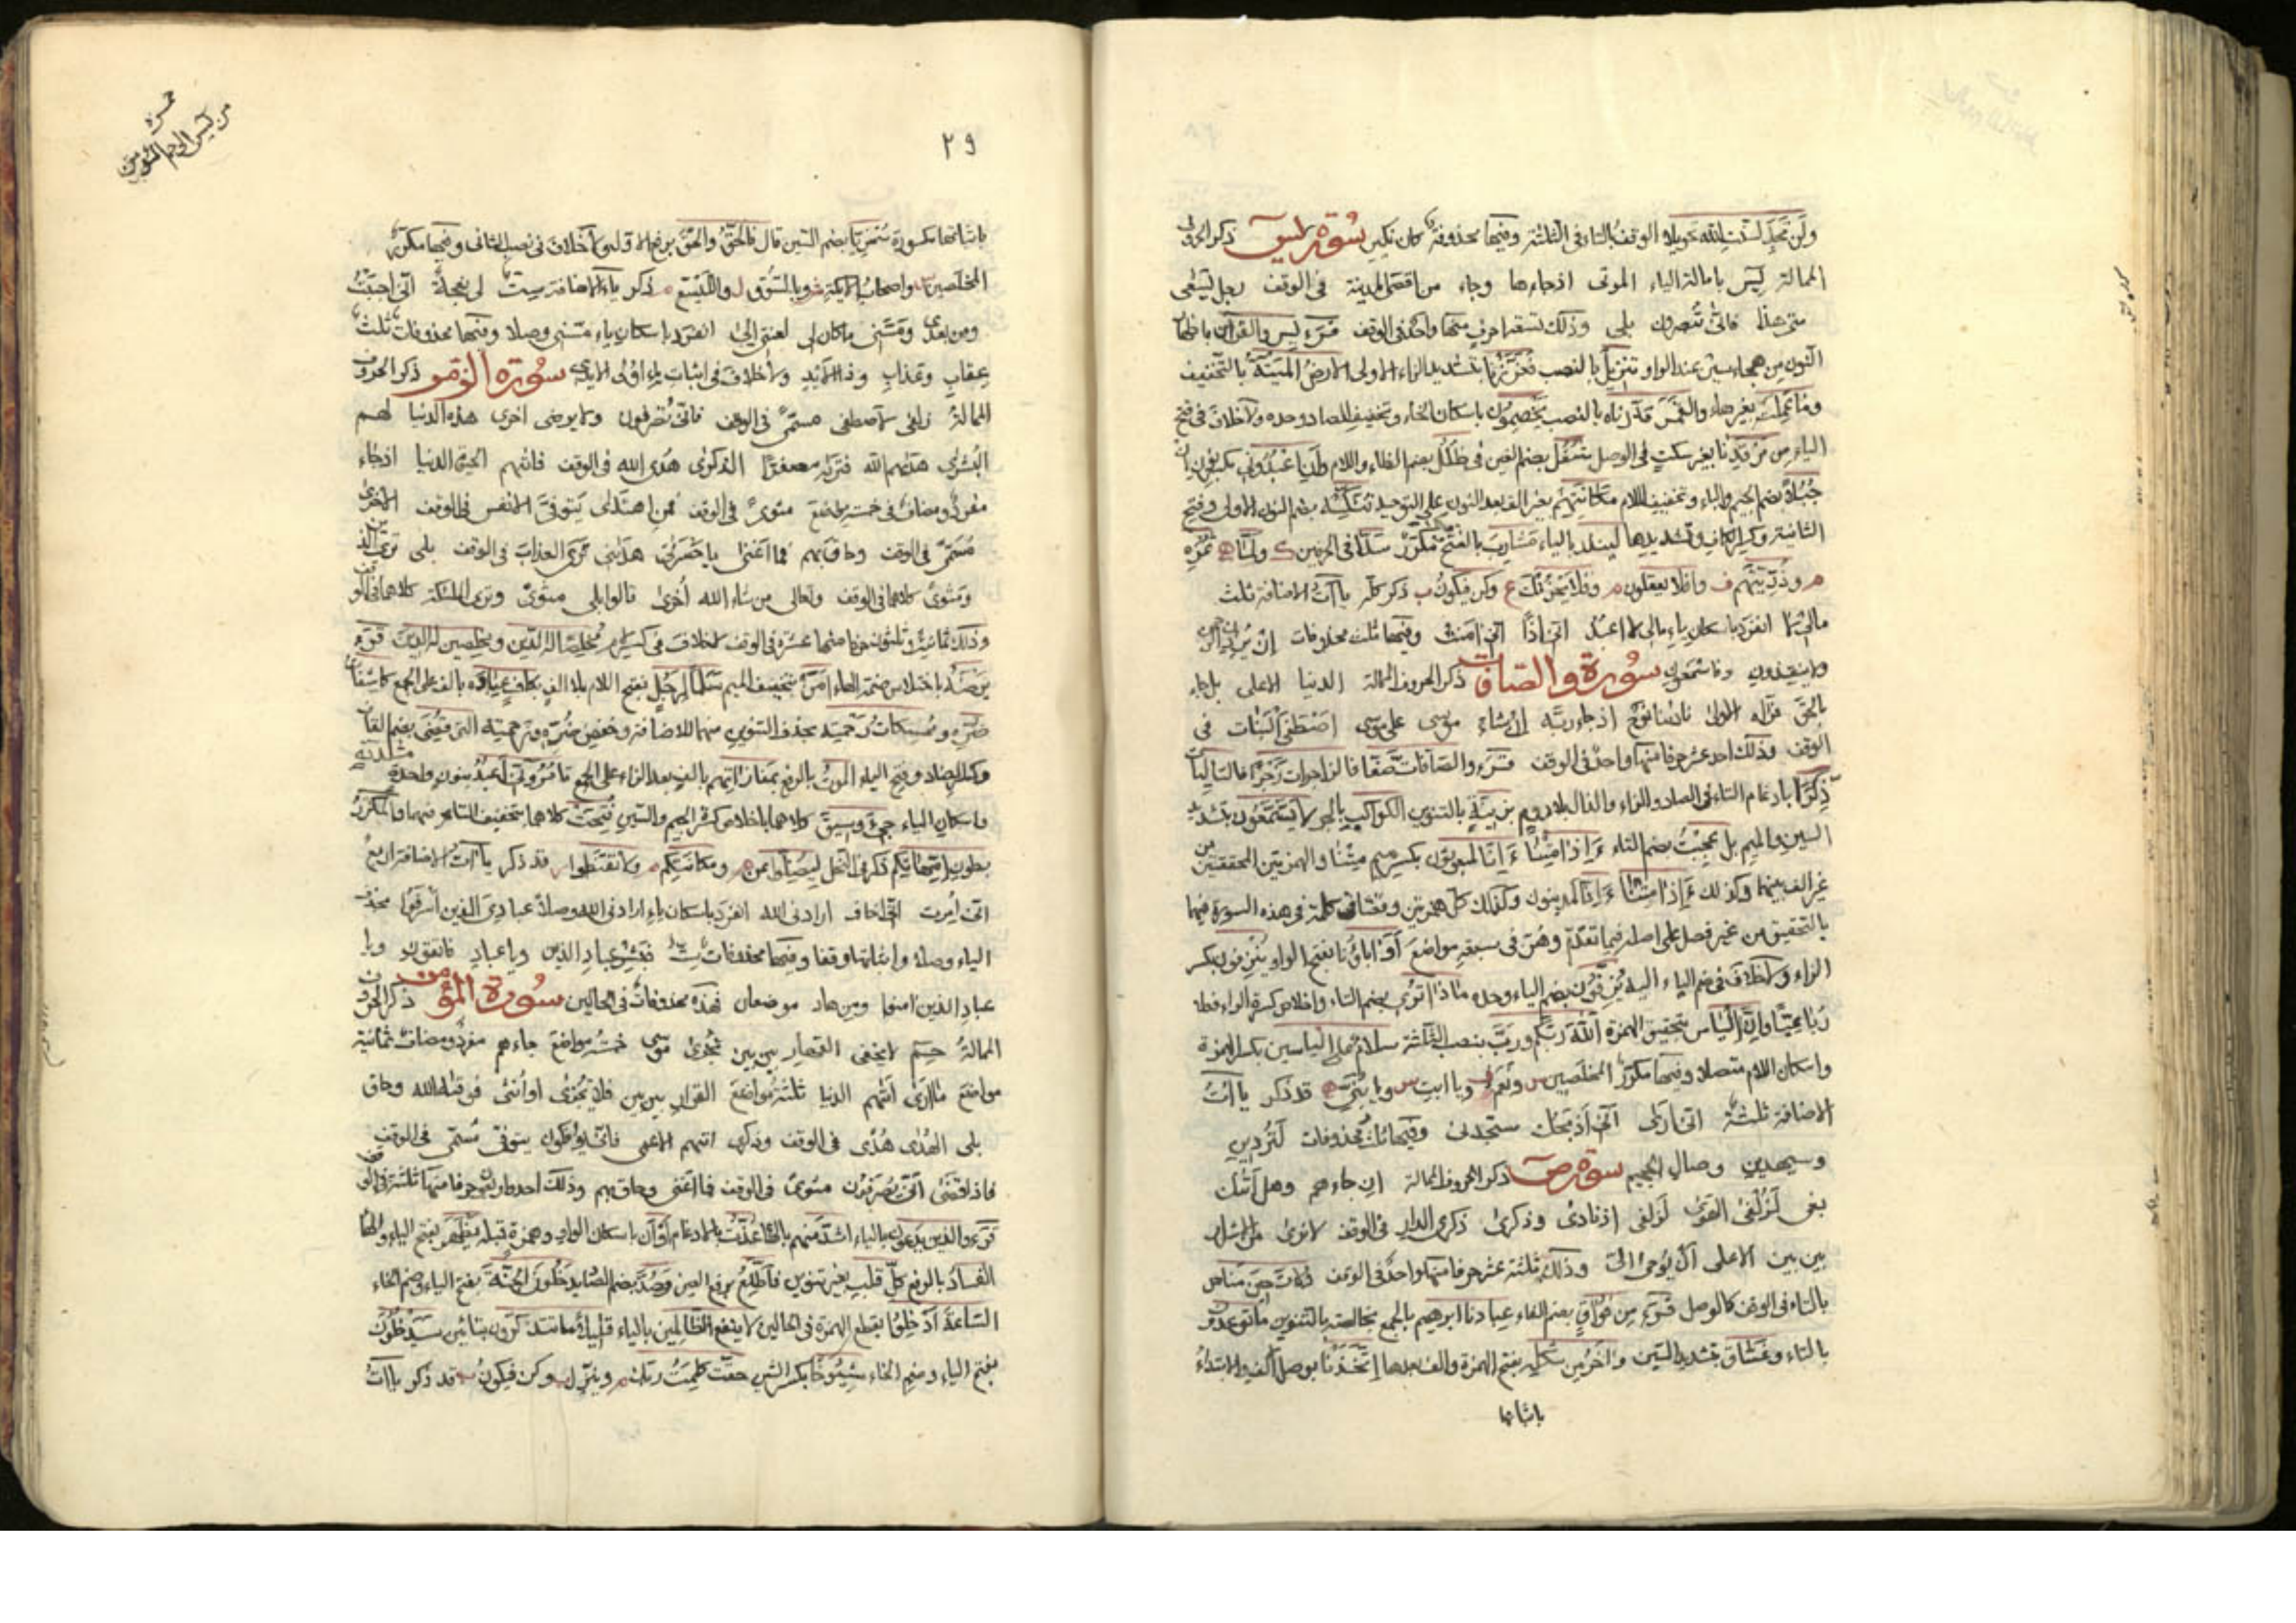 ولن تجد لسنت الله تحويلا الوقف بالتاء فى الثلثة وفيها محذوفة كان نكير سورة يس ذكر الحروف
الممالة يس بامالة الياء الموتى اذ جاءها وجاء من اقصى المدينة فى الوقف رجل يسعى
متى هذا فانى تبصرون بلى وذلك تسعة احرف منها واحد فى الوقف قرء يس والقرآن باظهار
النون من هجاء سين عند الواو تنزيل بالنصب فعززنا بتشديد الزاء الاولى الارض الميتة بالتخفيف
وما عملت بغير هاء والقمر قدرناه بالنصب يخصمون باسكان الخاء وتخفيف الصاد وحده ولا خلاف فى فتح
الياء من مرقدنا بغير سكت فى الوصل شغل بضم الغين فى ظلل بضم الظاء واللام وان اعبدونى بكسر النون
جبلا بضم الجيم والباء وتخفيف اللام مكانتهم بغير الف بعد النون على التوحيد ننكسه بضم النون الاولى وفتح
الثانية وكسر الكاف وتشديدها لينذر بالياء مشارب بالفتح مكرر سدا فى الحرفين ك ولما ه ثمره
م وذريتهم ف وافلا يعقلون م وفلا يحزنك ع وكن فيكون ب ذكر كله ياآت الاضافة ثلث
مالى لا انفرد باسكان ياء مالى لا اعبد انى اذا انى امنت وفيها ثلث محذوفات ان يردن الرحمن
ولا ينقذون وفاسمعون سورة والصافات ذكر الحروف الممالة الدنيا الاعلى بل جاء
بالحق فرآه الاولى نادينا نوح اذ جاء ربه ان شاء موسى على موسى اصطفى البنات فى
الوقف وذلك احد عشر حرفا منها واحد فى الوقف قرء والصافات صفا فالزاجرات زجرا فالتاليات
ذكرا بادغام التاء فى الصاد والزاء والذال بلا روم بزينة بالتنوين الكواكب بالجر لا يسمعون بتشديد
السين والميم بل عجبت بضم التاء ءاذا متنا ءانا لمبعوثون بكسر ميم متنا والهمزتين المحققتين من
غير الف بينهما وكذلك ءاذا متنا ءانا لمدينون وكذلك كل همزتين فى كلمة فى هذه السورة فيهما
بالتحقيق من غير فصل على اصله فيما تقدم وهن فى سبعة مواضع أو آباؤنا بفتح الواو ينزفون بكسر
الزاء ولا خلاف فى ضم الياء اليه يزفون بضم الياء وحده ماذا ترى بضم التاء واخلاص كسرة الراء فقط
وان الياس بتحقيق الهمزة الله ربكم ورب بنصب الثلثة سلام على الياسين بكسر الهمزة
واسكان اللام متصلا وفيها مكرر المخلصين س ونعم ويا ابت س ويا بنى ه قد ذكر ياآت
الاضافة ثلثة انى ارى انى اذبحك ستجدنى وفيها ثلث محذوفات لتردين
وسيهدين وصال الجحيم سورة ص ذكر الحروف الممالة ان جاءهم وهل اتيك
بغى لزلفى الهوى لزلفى اذ نادى وذكرى ذكرى الدار فى الوقف لا نرى من الاشرار
بين بين الاعلى ان يوحى الى وذلك ثلثة عشر حرفا منها واحد فى الوقف ولات حين مناص
بالتاء فى الوقف كالوصل قرء من فواق بضم الفاء عبادنا ابرهيم بالجمع بخالصة بالتنوين ما توعدون
بالتاء وغساق بتشديد السين وآخر من شكله بفتح الهمزة والف بعدها اتخذنا بوصل الف والابتداء
باثباتها
حمزة
من يس الى حم المؤمن
٢٩
باثباتها مكسورة سخريا بضم السين قال فالحق والحق برفع الاول ولا خلاف فى نصب الثانى وفيها مكرر
المخلصين واصحاب الايكة وبالسوق ل واليسع م ذكر ياء الاضافة ست لى نعجة انى احببت
ومن بعدى ومسنى ما كان لى لعنتى الى انفرد باسكان ياء مسنى وصلا وفيها محذوفات ثلث
عقاب وعذاب وذا الايد ولا خلاف فى اثبات ياء اولى الايدى سورة الزمر ذكر الحروف
الممالة زلفى لاصطفى مسمى فى الوقف فانى تصرفون ولا يرضى اخرى هذه الدنيا لهم
البشرى هديهم الله فتريه مصفرا لذكرى هدى الله فى الوقف فاتيهم الحيوة الدنيا اذ جاء
مفرد ومضاف فى خمسة مواضع مثوى فى الوقف فمن اهتدى يتوفى الانفس فى الوقف الاخرى
مسمى فى الوقف وحاق بهم فما اغنى يا حسرتى هدينى ترى العذاب فى الوقف بلى ترى الذين
ومثوى كلاهما فى الوقف وتعالى من شاء الله اخرى قالوا بلى مثوى وترى الملئكة كلاهما فى الوقف
وذلك ثمانية وثلثون حرفا منها عشرة فى الوقف لا خلاف فى كسر لام مخلصا له الدين ومخلصين له الدين قرء
يرضه باختلاس ضمة الهاء امن بتخفيف الميم سلما لرجل بفتح اللام بلا الف بكاف عباده بالف على الجمع كاشفات
ضره وممسكات رحمته بحذف التنوين منهما للاضافة وخفض ضره ورحمته التى قضى بضم القاف
وكسر الضاد وفتح الياء الموت بالرفع بمفازاتهم بالف بعد الزاء على الجمع تامرونى اعبد بنون واحدة مشددة
واسكان الياء جىء وسيق كلاهما باخلاص كسرة الجيم والسين فتحت كلاهما بتخفيف التاء فيهما والمكرر
بطون امهاتكم ذكر فى النحل ليضل ومكانتكم م ولا تقنطوا ر قد ذكر ياآت الاضافة اربع
انى امرت انى اخاف ارادنى الله انفرد باسكان ياء ارادنى الله وصلا عبادى الذين اسرفوا بحذف
الياء وصلا واثباتها وقفا وفيها محذوفات ست فبشر عباد الذين ويا عباد فاتقون ويا
عباد الذين امنوا ومن هاد موضعان فهذه محذوفات فى الحالين سورة المؤمن ذكر الحروف
الممالة حم لا يخفى القهار بين بين تجزى موسى خمسة مواضع جاءهم مفرد ومضاف ثمانية
مواضع ما ارى اتيهم الدنيا ثلثة مواضع القرار بين بين فلا يجزى او انثى فوقيه الله وحاق
بلى الهدى هدى فى الوقف وذكرى اتيهم الاعمى فانى تؤفكون يتوفى مسمى فى الوقف
فاذا قضى انى يصرفون مثوى فى الوقف فما اغنى وحاق بهم وذلك احد واربعون حرفا منها ثلثة فى الوقف
قرء والذين يدعون بالياء اشد منهم بالهاء عذت بالادغام او ان باسكان الواو وهمزة قبله يظهر بفتح الياء والهاء
الفساد بالرفع كل قلب بغير تنوين فاطلع برفع العين وصد بضم الصاد يدخلون الجنة بفتح الياء وضم الخاء
الساعة ادخلوا بقطع الهمزة فى الحالين لا ينفع الظالمين بالياء قليلا ما تتذكرون بتائين سيدخلون
بفتح الياء وضم الخاء شيوخا بكسر الشين حقت كلمت ربك م وينزل وكن فيكون قد ذكر ياآت